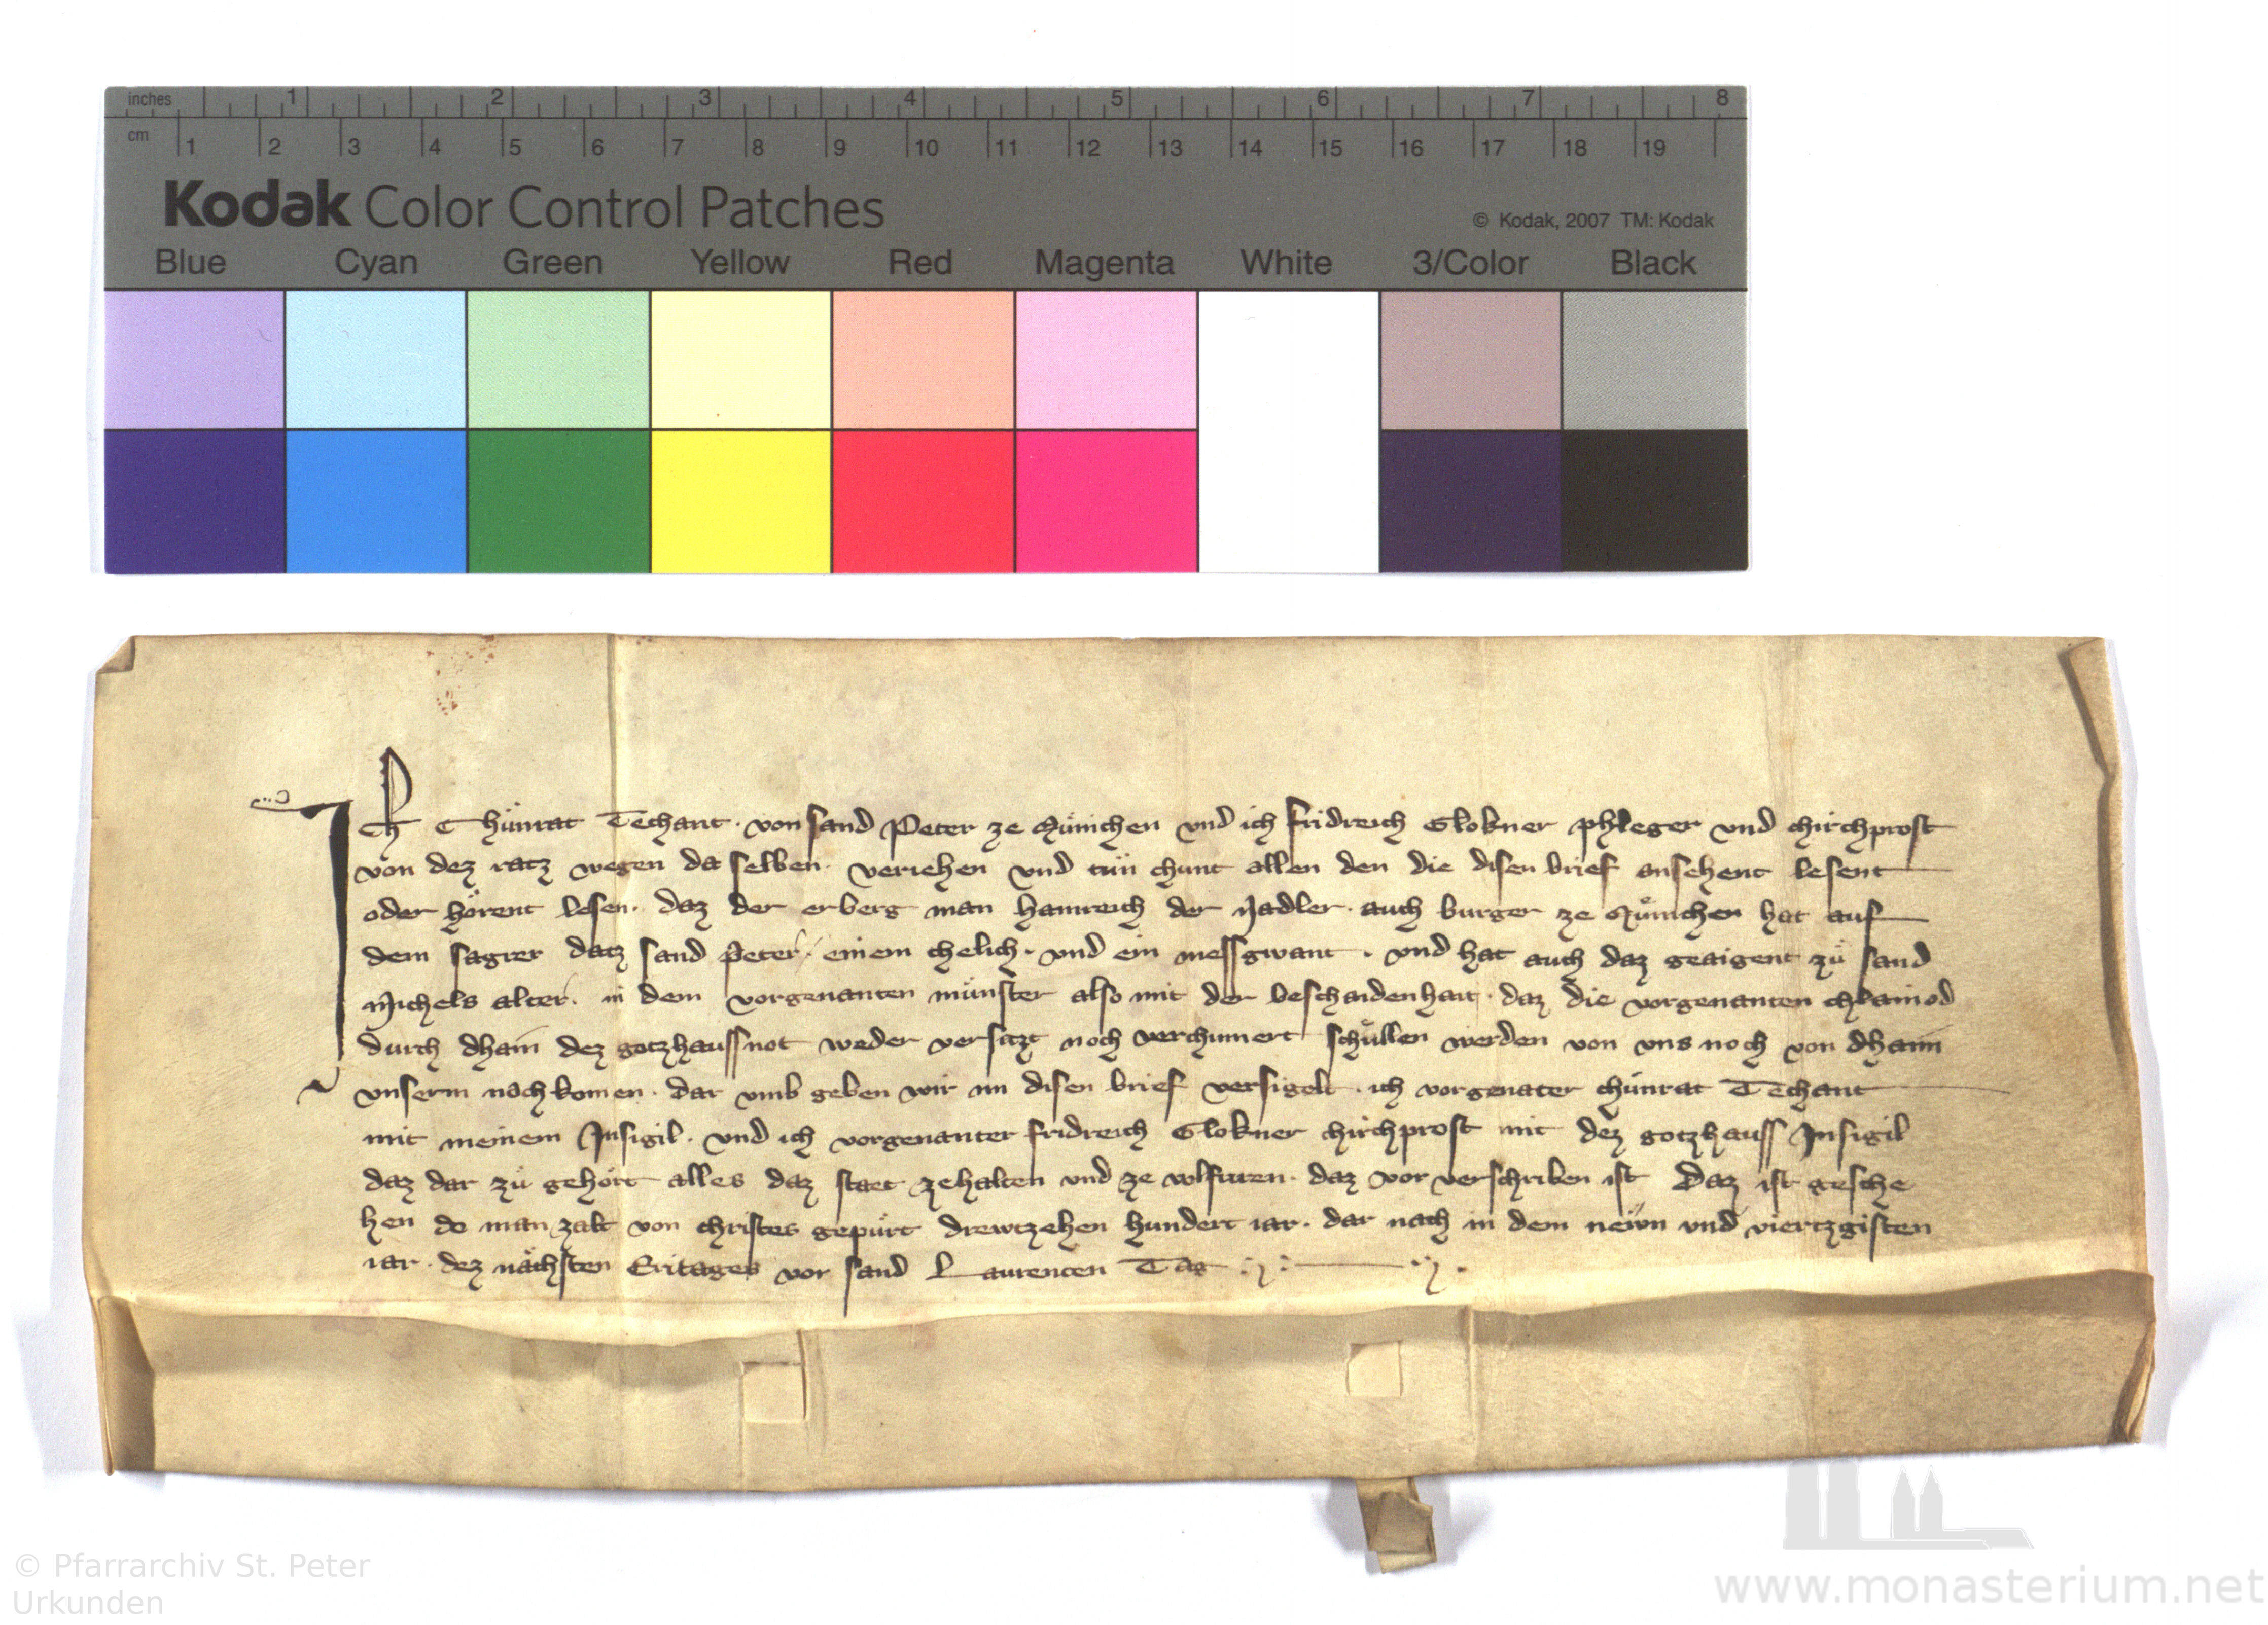 inches 1 2 3 4 5 6 7 8
cm 1 2 3 4 5 6 7 8 9 10 11 12 13 14 15 16 17 18 19
Kodak Color Control Patches
© Kodak, 2007 TM: Kodak
Blue Cyan Green Yellow Red Magenta White 3/Color Black
Ich Chuͤnrat Techant · von sand Peter ze Muͤnichen vnd ich fridreich Glokner phleger vnd chirchprost
von dez ratz wegen da selben · veriehen vnd tuͤn chunt allen den die disen brief ansehent lesent
oder hoͤrent lesen · daz der erberg man hainreich der Nadler · auch burger ze Muͤnichen hat auf
dem sagrer datz sand Peter · einem chelich · vnd ein messgwant · vnd hat auch daz geaigent zuͤ sand
Michels alter · in dem vorgenanten muͤnster also mit der beschaidenhait · daz die vorgenanten chlainod
durch dhain dez gotzhauss not weder versatzt noch verchumert schuͤllen werden von vns noch von dhaim
vnserm nachkomen · dar vmb geben wir im disen brief versigelt · ich vorgenater chuͤnrat Techant
mit meinem Insigil · vnd ich vorgenanter fridreich Glokner chirchprost mit dez gotzhauss Insigil
daz dar zuͤ gehoͤrt alles daz staet ze halten vnd ze volfuren · daz vor verschriben ist Daz ist gesche
hen do man zalt von christes gepuͤrt drewtzehen hundert iar · dar nach in dem newn vnd viertzgisten
iar · dez naͤchsten Eritages vor sand Laurencen Tag
© Pfarrarchiv St. Peter
Urkunden
www.monasterium.net